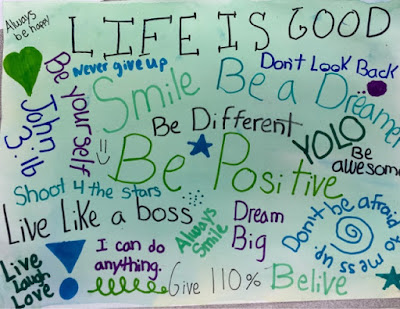 Always
be happy
LIFE IS GOOD
Never give up
Don't Look Back
Be yourself
John
3:16
Smile
Be a Dreamer
Be Different
YOLO
Be
awesome
Be Positive
Shoot 4 the stars
Live Like a boss
Always
Smile
Dream
Big
Don't be afraid to
mess up
I can do
anything.
Live
Laugh
Love!
Give 110%
Belive